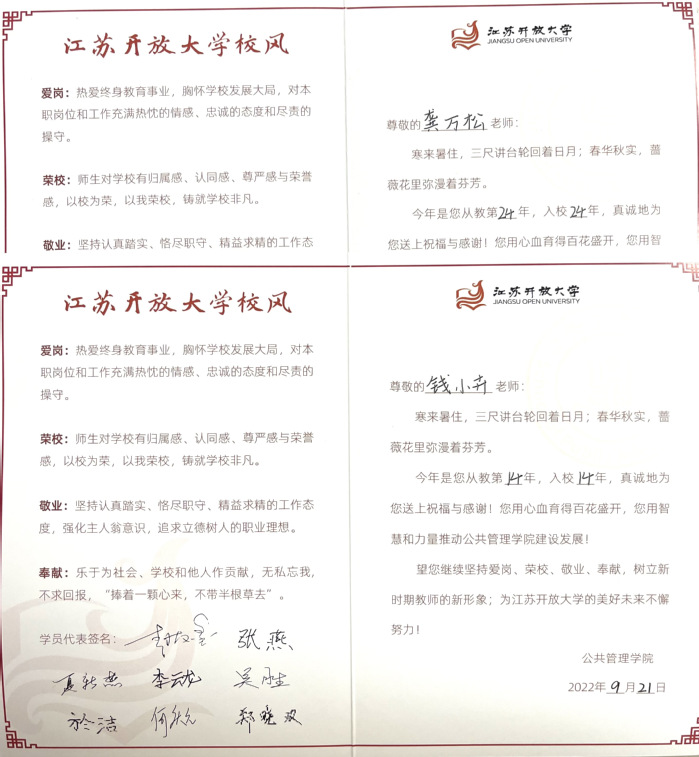 江苏开放大学校风
爱岗：热爱终身教育事业，胸怀学校发展大局，对本
职岗位和工作充满热忱的情感、忠诚的态度和尽责的
操守。
荣校：师生对学校有归属感、认同感、尊严感与荣誉
感，以校为荣，以我荣校，铸就学校非凡。
敬业：坚持认真踏实、恪尽职守、精益求精的工作态
江苏开放大学
JIANGSU OPEN UNIVERSITY
尊敬的龚万松老师：
寒来暑住，三尺讲台轮回着日月；春华秋实，蔷
薇花里弥漫着芬芳。
今年是您从教第24年，入校24年，真诚地为
您送上祝福与感谢！您用心血育得百花盛开，您用智
江苏开放大学校风
爱岗：热爱终身教育事业，胸怀学校发展大局，对本
职岗位和工作充满热忱的情感、忠诚的态度和尽责的
操守。
荣校：师生对学校有归属感、认同感、尊严感与荣誉
感，以校为荣，以我荣校，铸就学校非凡。
敬业：坚持认真踏实、恪尽职守、精益求精的工作态
度，强化主人翁意识，追求立德树人的职业理想。
奉献：乐于为社会、学校和他人作贡献，无私忘我，
不求回报，“捧着一颗心来，不带半根草去”。
学员代表签名：张燕
李云龙
於洁 郑晓双
江苏开放大学
JIANGSU OPEN UNIVERSITY
尊敬的钱小卉老师：
寒来暑住，三尺讲台轮回着日月；春华秋实，蔷
薇花里弥漫着芬芳。
今年是您从教第14年，入校14年，真诚地为
您送上祝福与感谢！您用心血育得百花盛开，您用智
慧和力量推动公共管理学院建设发展！
望您继续坚持爱岗、荣校、敬业、奉献，树立新
时期教师的新形象；为江苏开放大学的美好未来不懈
努力！
公共管理学院
2022年9月21日